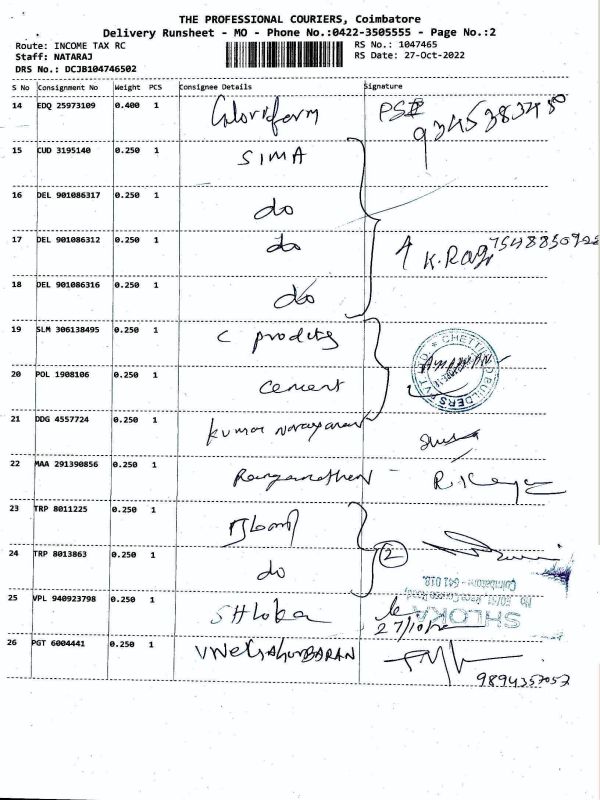 THE PROFESSIONAL COURIERS, Coimbatore
Delivery Runsheet - MO - Phone No.:0422-3505555 - Page No.:2
Route: INCOME TAX RC RS No.: 1047465
Staff: NATARAJ RS Date: 27-Oct-2022
DRS No.: DCJB104746502
S No Consignment No Weight PCS Consignee Details Signature
14 EDQ 25973109 0.400 1
15 CUD 3195140 0.250 1 SIMA
16 DEL 901086317 0.250 1 do
17 DEL 901086312 0.250 1 do K. Raj
18 DEL 901086316 0.250 1 do
19 SLM 306138495 0.250 1 C
CHETTINAD BUILDERS PVT LTD
20 POL 1908106 0.250 1 cement
21 DDG 4557724 0.250 1 Kumar Narayanan
22 MAA 291390856 0.250 1 Ranganathan
23 TRP 8011225 0.250 1
24 TRP 8013863 0.250 1 do 2
25 VPL 940923798 0.250 1 SHloka
SHLOKA
Race Course Road,
Coimbatore - 641 018.
26 PGT 6004441 0.250 1
9894357057